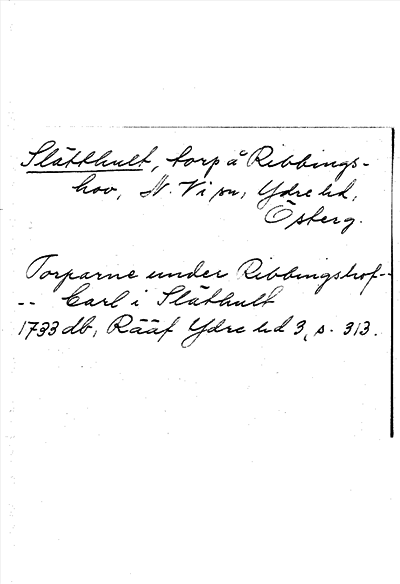 Slätthult, torp å Ribbings-
hov, N. Vi sn, Ydre hd,
Österg.
Torparne under Ribbingshof--
-- Carl i Släthult
1733 db, Rääf Ydre hd 3, s. 313.